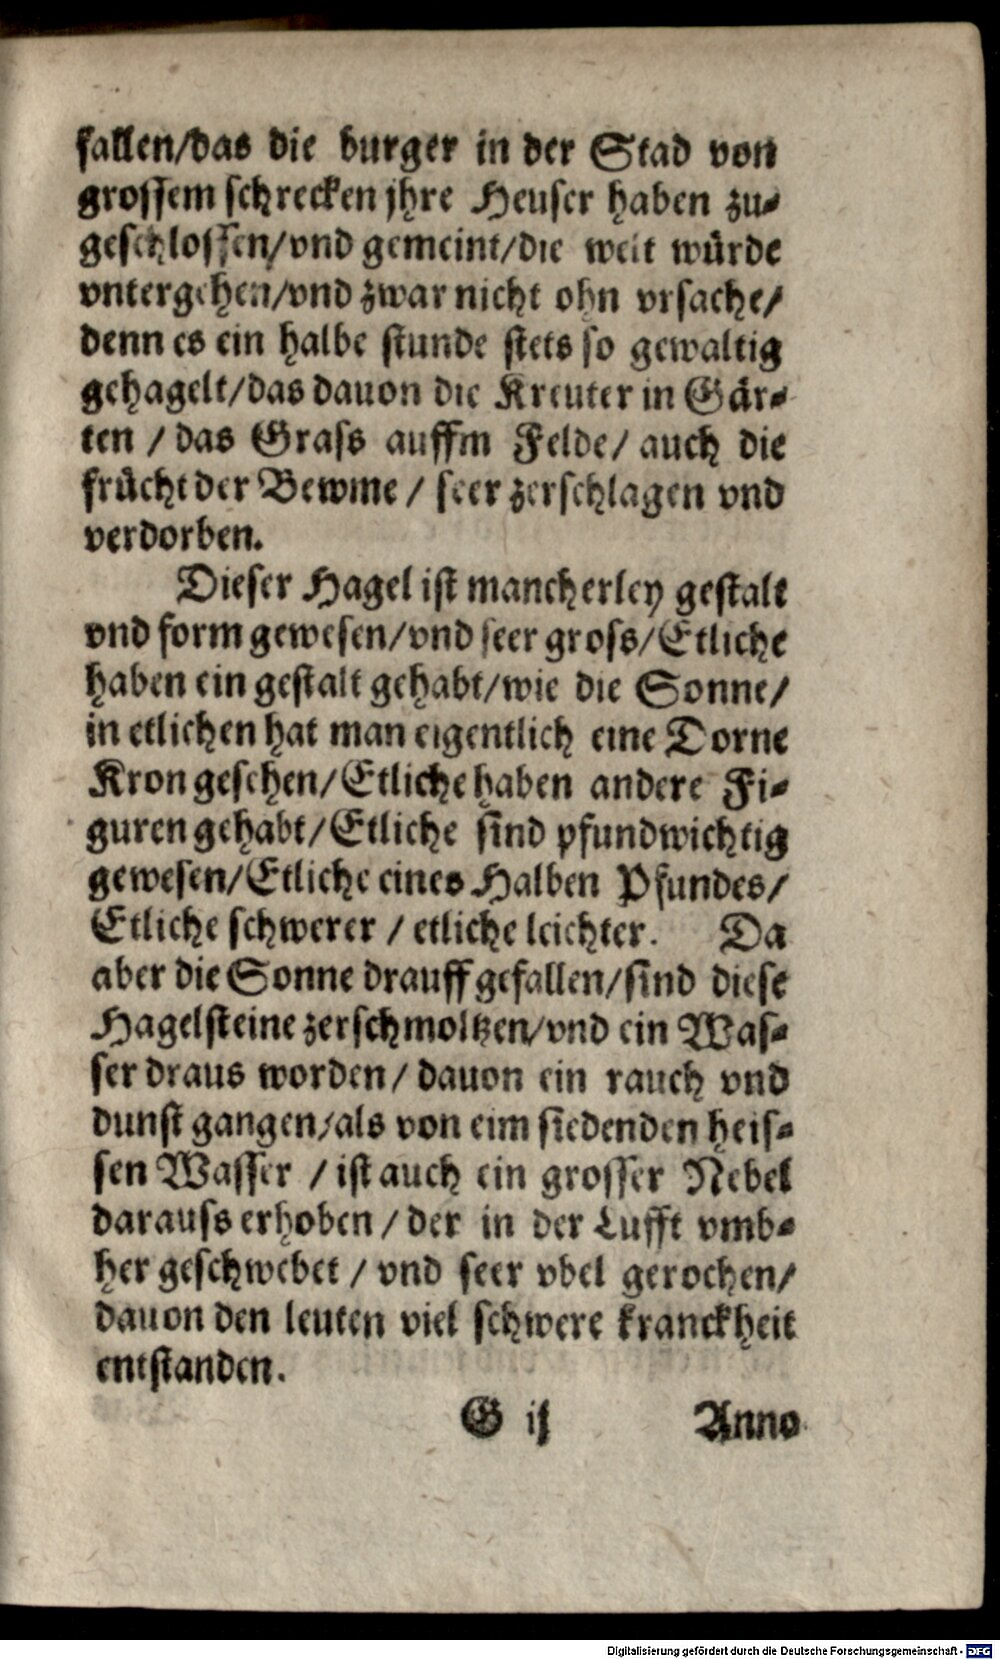 fallen/das die burger in der Stad von
grossem schrecken jhre Heuser haben zu-
geschlossen/vnd gemeint/die welt würde
vntergehen/vnd zwar nicht ohn vrsache/
denn es ein halbe stunde stets so gewaltig
gehagelt/das dauon die Kreuter in Gär-
ten / das Grass auffm Felde/ auch die
frücht der Bewme / seer zerschlagen vnd
verdorben.
Dieser Hagel ist mancherley gestalt
vnd form gewesen/vnd seer gross/Etliche
haben ein gestalt gehabt/wie die Sonne/
in etlichen hat man eigentlich eine Dorne
Kron gesehen/Etliche haben andere Fi-
guren gehabt/Etliche sind pfundwichtig
gewesen/Etliche eines Halben Pfundes/
Etliche schwerer / etliche leichter. Da
aber die Sonne drauff gefallen/sind diese
Hagelsteine zerschmoltzen/vnd ein Was-
ser draus worden/ dauon ein rauch vnd
dunst gangen/als von eim siedenden heis-
sen Wasser / ist auch ein grosser Nebel
darauss erhoben / der in der Lufft vmb-
her geschwebet / vnd seer vbel gerochen/
dauon den leuten viel schwere kranckheit
entstanden.
G ij Anno
Digitalisierung gefördert durch die Deutsche Forschungsgemeinschaft - DFG